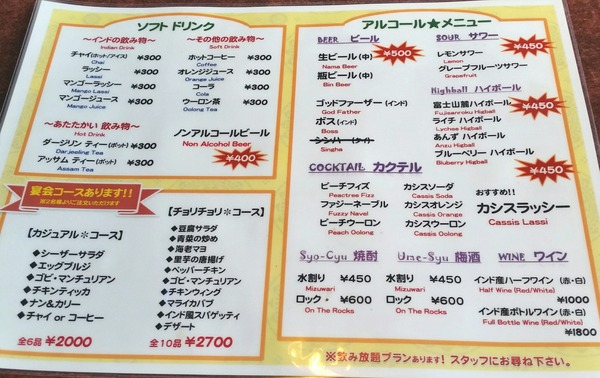 ソフトドリンク
～インドの飲み物～
Indian Drink
チャイ(ホット/アイス) ¥300
Chai
ラッシー ¥300
Lassi
マンゴーラッシー ¥300
Mango Lassi
マンゴージュース ¥300
Mango Juice
～その他の飲み物～
Soft Drink
ホットコーヒー ¥300
Coffee
オレンジジュース ¥300
Orange Juice
コーラ ¥300
Cola
ウーロン茶 ¥300
Oolong Tea
～あたたかい 飲み物～
Hot Drink
ダージリン ティー(ポット) ¥300
Darjeeling Tea
アッサム ティー(ポット) ¥300
Assam Tea
ノンアルコールビール
Non Alcohol Beer
¥400
宴会コースあります!!
※2名様よりご注文いただけます
【カジュアル＊コース】
◆シーザーサラダ
◆エッグプルジ
◆ゴビ・マンチュリアン
◆チキンティッカ
◆ナン&カリー
◆チャイ or コーヒー
全6品 ¥2000
【チョリチョリ＊コース】
◆豆腐サラダ
◆青菜の炒め
◆海老マヨ
◆里芋の唐揚げ
◆ペッパーチキン
◆ゴビ・マンチュリアン
◆チキンウィング
◆マライカバブ
◆インド風スパゲッティ
◆デザート
全10品 ¥2700
アルコール★メニュー
BEER ビール
¥500
生ビール(中)
Nama Beer
瓶ビール(中)
Bin Beer
ゴッドファーザー(インド)
God Father
ボス(インド)
Boss
シンハー(タイ)
Singha
SOUR サワー
¥450
レモンサワー
Lemon
グレープフルーツサワー
Grapefruit
Highball ハイボール
¥450
富士山麓ハイボール
Fujisanroku Higball
ライチ ハイボール
Lychee Higball
あんず ハイボール
Anzu Higball
ブルーベリー ハイボール
Bluberry Higball
COCKTAIL カクテル
¥450
ピーチフィズ
Peactree Fizz
ファジーネーブル
Fuzzy Navel
ピーチウーロン
Peach Oolong
カシスソーダ
Cassis Soda
カシスオレンジ
Cassis Orange
カシスウーロン
Cassis Oolong
おすすめ!!
カシスラッシー
Cassis Lassi
Syo-Cyu 焼酎
水割り ¥450
Mizuwari
ロック ¥600
On The Rocks
Ume-Syu 梅酒
水割り ¥450
Mizuwari
ロック ¥600
On The Rocks
WINE ワイン
インド産ハーフワイン (赤・白)
Half Wine (Red/White)
¥1000
インド産ボトルワイン (赤・白)
Full Bottle Wine (Red/White)
¥1800
※飲み放題プランあります! スタッフにお尋ね下さい。